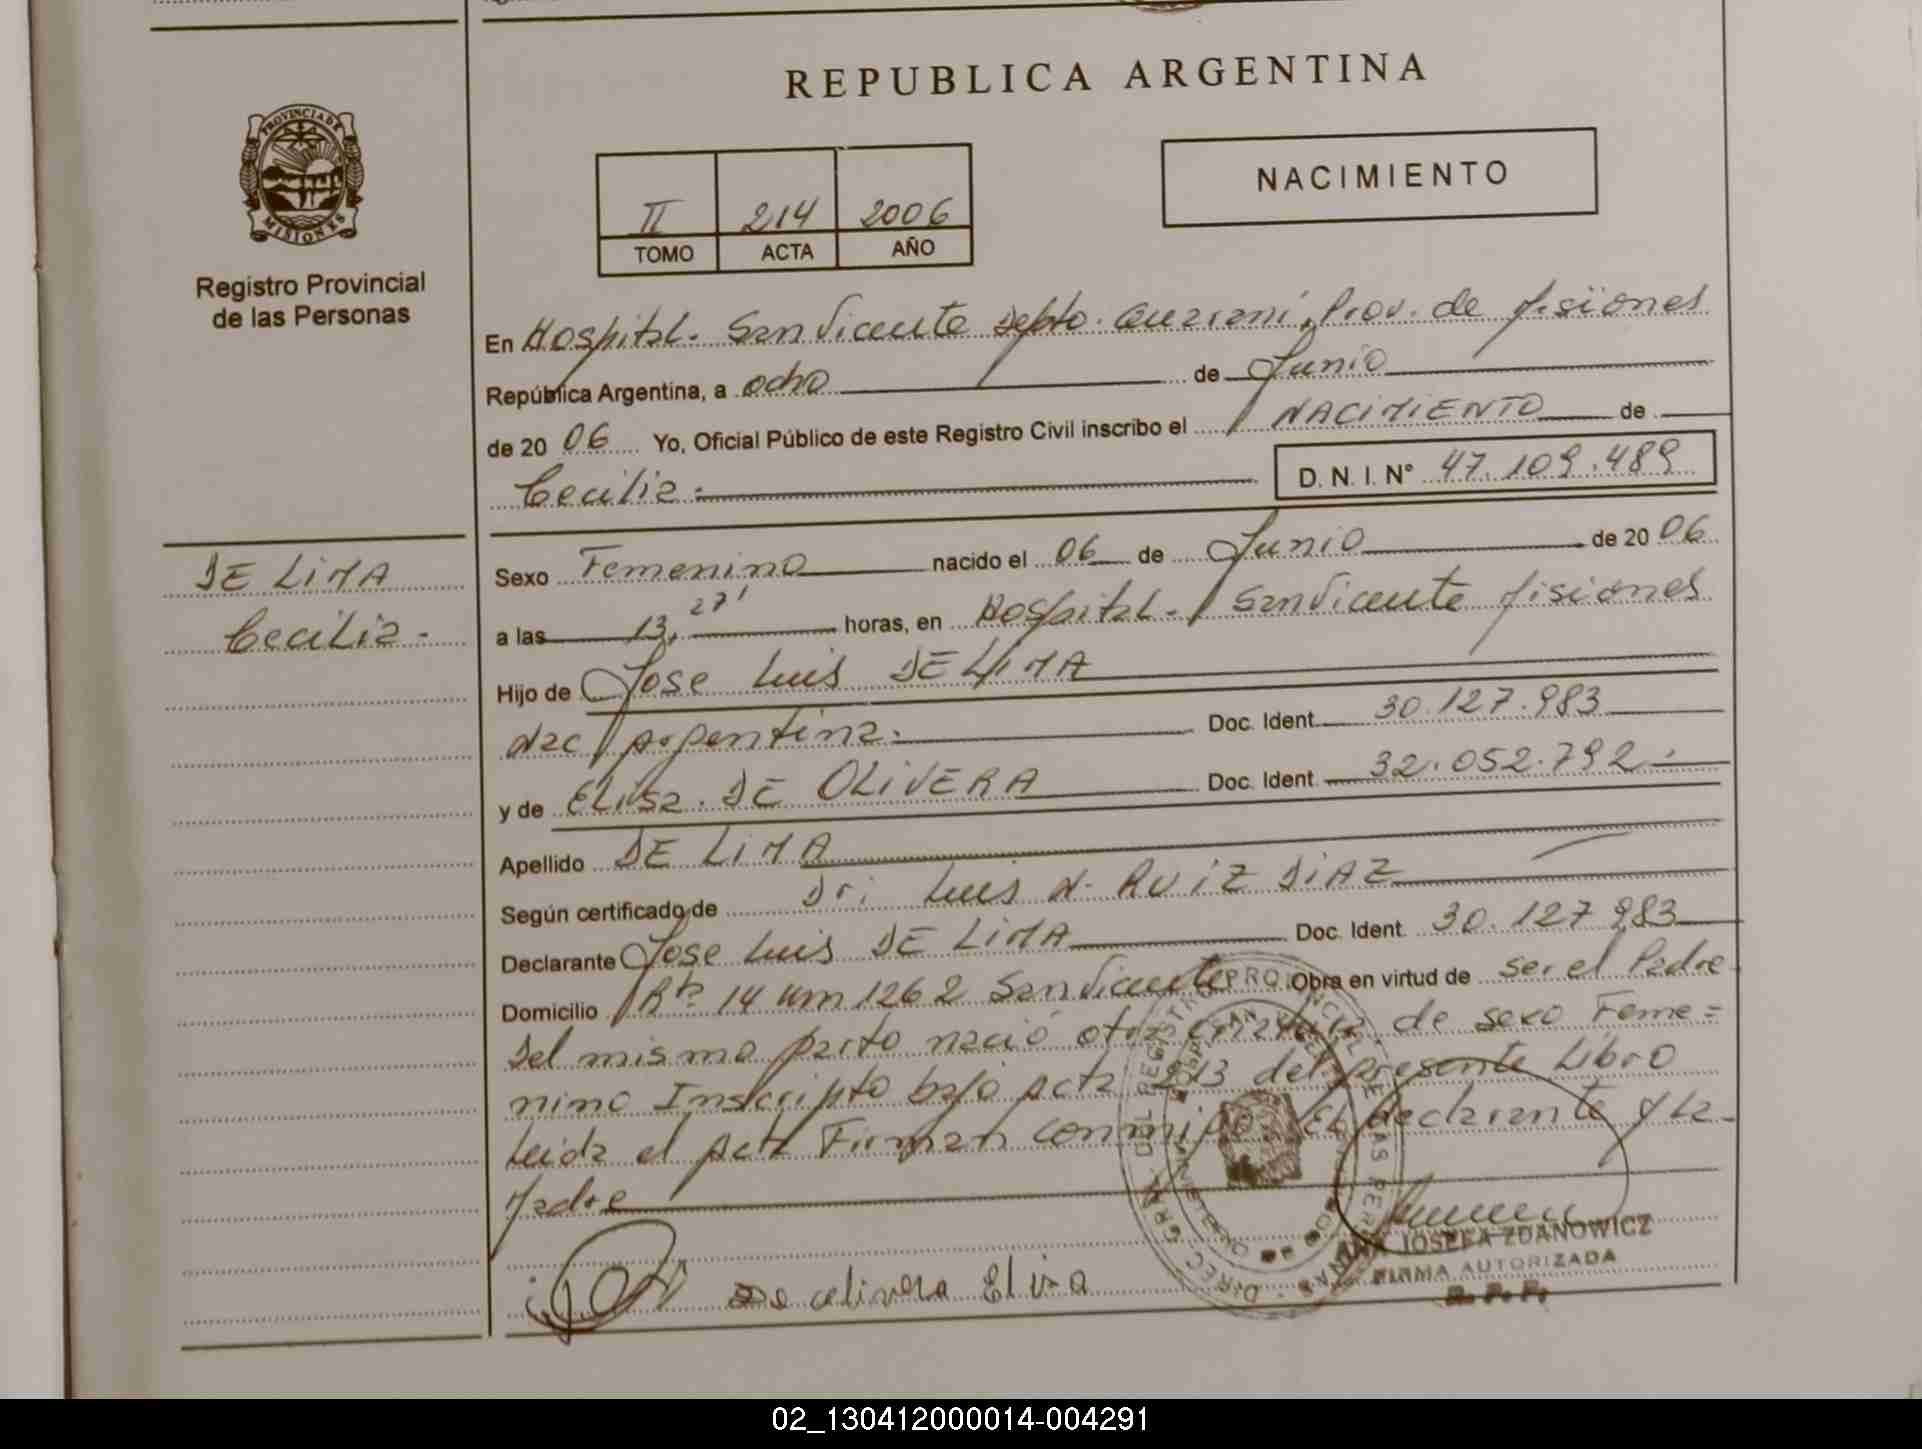 REPUBLICA ARGENTINA
PROVINCIA DE
MISIONES
Registro Provincial
de las Personas
II 214 2006
TOMO ACTA AÑO
NACIMIENTO
En Hospital. San Vicente Depto. Guarani, Prov. de Misiones
República Argentina, a ocho de Junio
de 2006 Yo, Oficial Público de este Registro Civil inscribo el NACIMIENTO de
Cecilia.- D. N. I. N° 47.109.489
DE LIMA
Cecilia-
Sexo Femenino nacido el 06 de Junio de 2006
a las 13,27' horas, en Hospital- San Vicente Misiones
Hijo de Jose Luis DE LIMA
Nac Argentina.- Doc. Ident. 30.127.983
y de DE OLIVERA Doc. Ident. 32.052.792.-
Apellido DE LIMA
Según certificado de Dr: Luis N. RUIZ DIAZ
Declarante Jose Luis DE LIMA Doc. Ident. 30.127.983
Domicilio Rta 14 Km 1262 San Vicente Obra en virtud de ser el Padre
Del mismo parto nació otra criatura de sexo Feme=
nino Inscripto bajo acta 213 del presente Libro
Leida el acta Firman conmigo El declarante y La
Madre
De olivera
JOSEFA ZDANOWICZ
FIRMA AUTORIZADA
R. P. P.
02_130412000014-004291